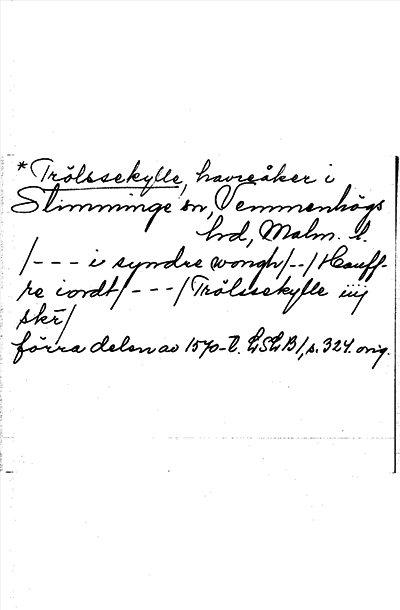 *Trölssekylle, havreåker i
Slimminge sn, Vemmenhögs
hd, Malm. l.
/--- i syndre wongh/--/Hauff-
re iordt/---/Trölssekylle iiij
skr/
förra delen av 1570-t. LSLB1, s. 324. orig.